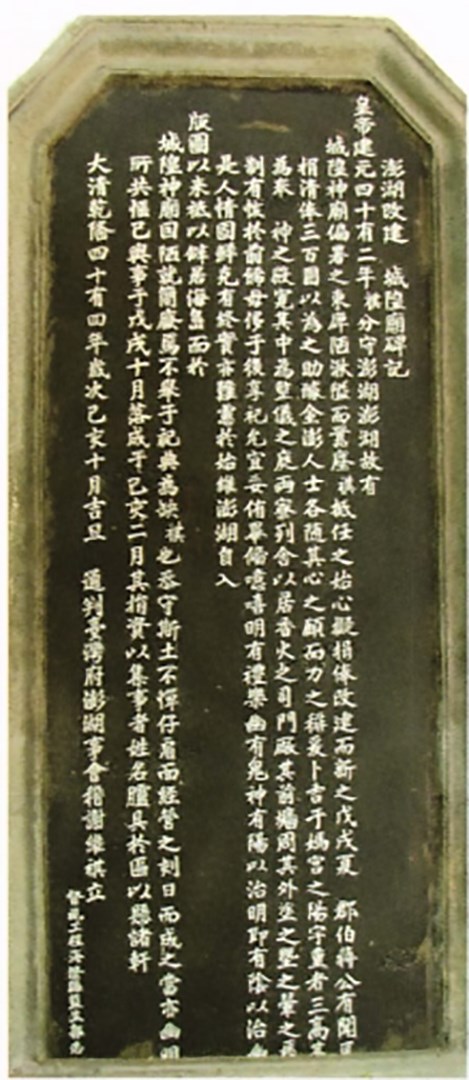 澎湖改建　城隍廟碑記
皇帝建元四十有二年祺分守澎湖澎湖故有
城隍神廟偏署之東庳陋湫隘而廢祺抵任之始心擬捐俸改建而新之戊戌夏　郡伯蔣公有聞
捐清俸三百圓以為之助全澎人士各隨其心之願而力之稱爰卜吉于媽宮之陽宇重者三高
為　神之寢寬其中為儀之庭兩寮列舍以居香火之司門厰其前墻周其外塗之墍之
制有恢於前飾毋侈于後享祀允宜妥侑畢備噫嘻明有禮樂幽有鬼神有陽以治明即有陰以治幽
是人情固鮮克有終實亦難慮於始維澎湖自入
版圖以來祇以僻居海島而於
城隍神廟因陋就簡廢焉不舉于祀典為缺祺也忝守斯土不憚仔肩而經營之刻日而成之當亦幽明
所共愜已興事于戊戌十月落成于己亥二月其捐資以集事者姓名臚具於匾以懸諸軒
大清乾隆四十有四年歲次己亥十月吉旦　通判臺灣府澎湖事會稽謝維祺立
工程海澄縣監生郭